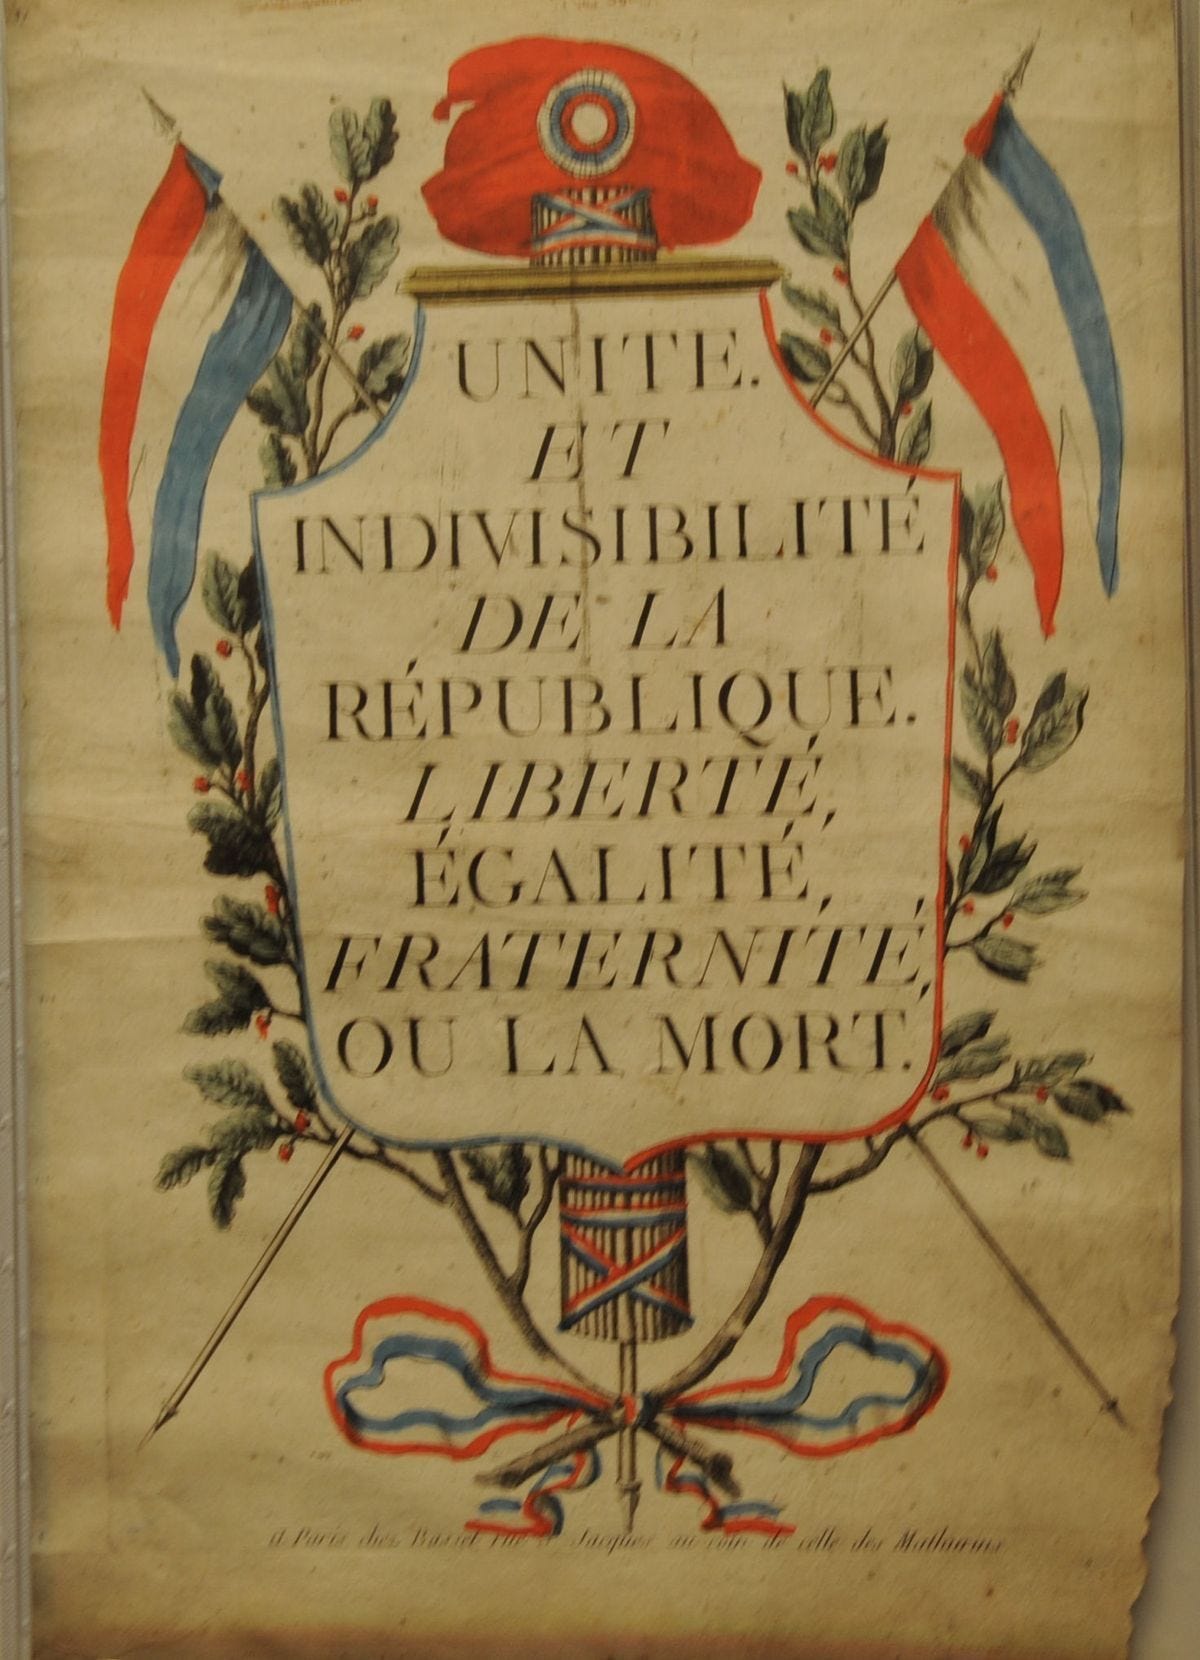 UNITE.
ET
INDIVISIBILITÉ
DE LA
RÉPUBLIQUE.
LIBERTÉ,
ÉGALITÉ,
FRATERNITÉ,
OU LA MORT.
a Paris chez Basset rue St Jacques au coin de celle des Mathurins